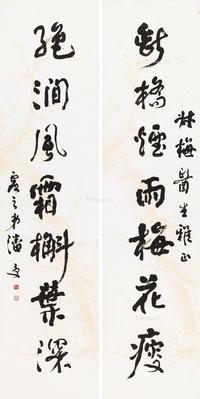 林梅醫生雅正
斷橋煙雨梅花瘦
絕澗風霜槲葉深
虛之弟潘受